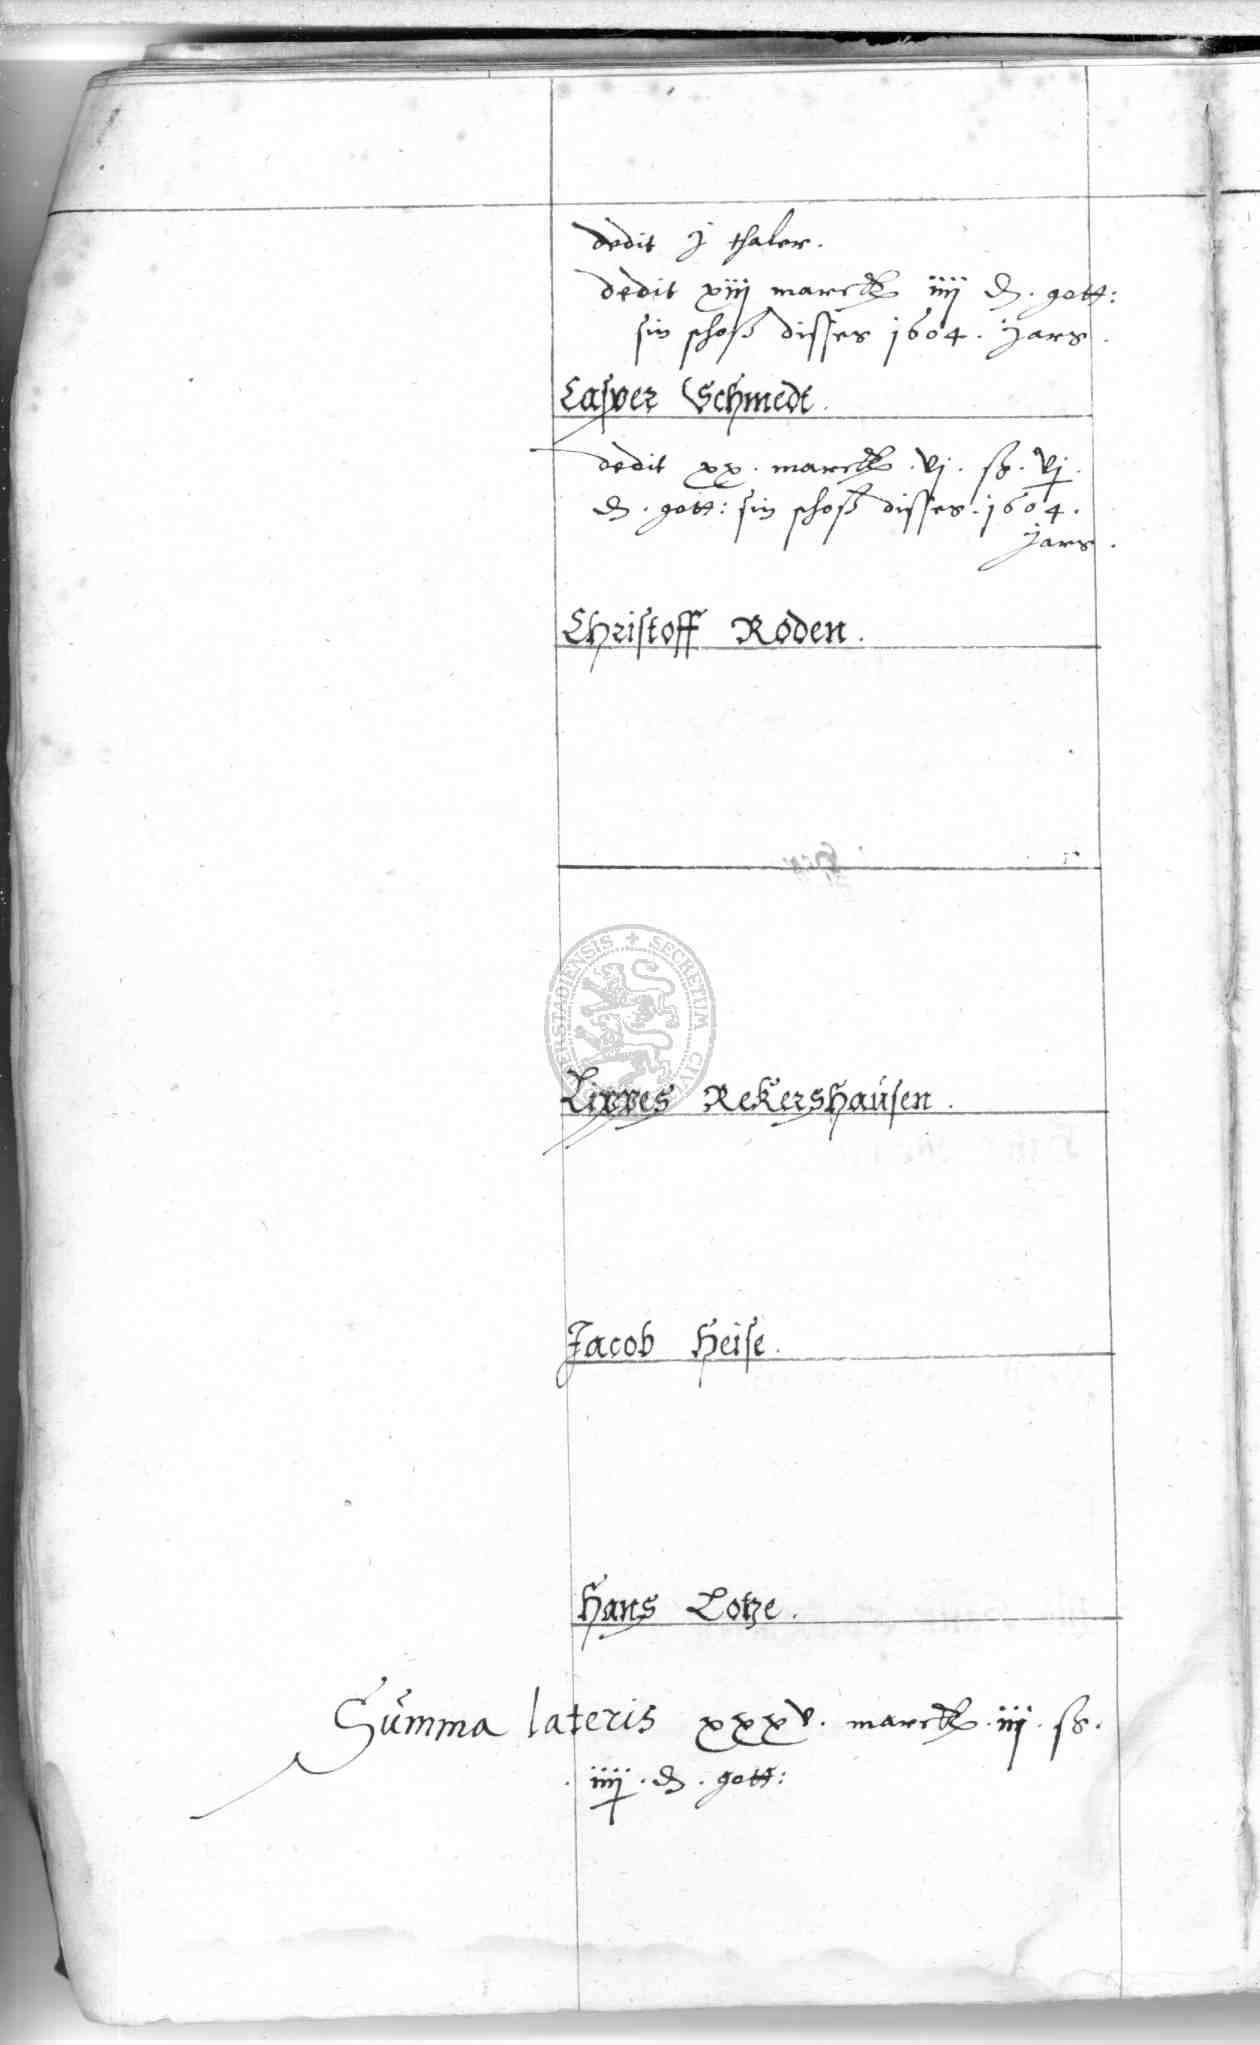 dedit j thaler.
dedit xiij marck iiij d. gott:
sin schoß disses 1604. Jars.
Casper Schmedt.
dedit xx. marck. vj. ß. vj.
d. gott: sin schoß disses. 1604.
Jars.
Christoff Roden.
ERSTADIENSIS + SECRETUM CIVI
Lippes Rekershausen.
Jacob Heise.
Hans Lotze.
Summa lateris xxxv. marck. iij. ß.
. iiij. d. gott: